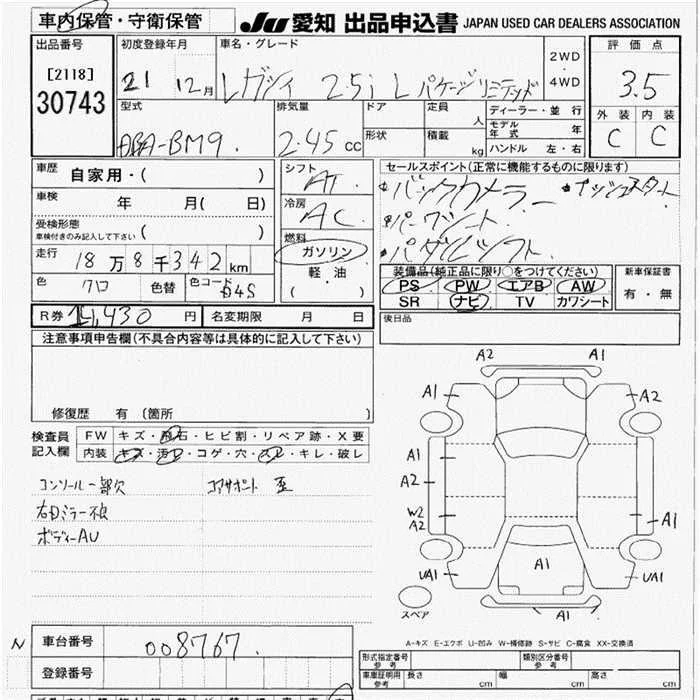 車内保管・守衛保管
JU 愛知 出品申込書 JAPAN USED CAR DEALERS ASSOCIATION
出品番号
[2118]
30743
初度登録年月
21 12月
車名・グレード
レガシィ 2.5i L パケージリミテッド
2WD
・
4WD
評価点
3.5
外装 内装
C C
型式
DBA-BM9.
排気量
2.45 cc
ドア
形状
定員
人
積載
kg
ディーラー・並行
モデル年式 年
ハンドル 左・右
車歴
自家用・( )
車検
年 月( 日)
受検形態
車検付きのみ記入して下さい ( )
走行
18万8千342km
色
クロ
色替
色コード
D4S
シフト
AT
冷房
AC
燃料
ガソリン
・
軽油
( )
セールスポイント(正常に機能するものに限ります)
・バックカメラー ・プッシュスタート
・パーワシート
・パダルシフト
装備品(純正品に限り○をつけてください)
PS PW エアB AW
SR ナビ TV カワシート
新車保証書
有・無
後日品
R券 14,430 円
名変期限 月 日
注意事項申告欄(不具合内容等は具体的に記入して下さい)
修復歴 有(箇所 )
検査員
記入欄
FW キズ・飛石・ヒビ割・リペア跡・X要
内装 キズ・汚レ・コゲ・穴・スレ・キレ・破レ
コンソール一部欠 コアサポート 歪
右ミラー不良
ボディーAU
A2 A1
A1 A2
A1
A2
W2
A2
A1
UA1
A1
UA1
A1
スペア
A-キズ E-エクボ U-凹み W-補修跡 S-サビ C-腐食 XX-交換済
N
車台番号
008767.
登録番号
形式指定番号
参考
類別区分番号
参考
車庫証明用
参考
長さ cm
幅 cm
高さ cm